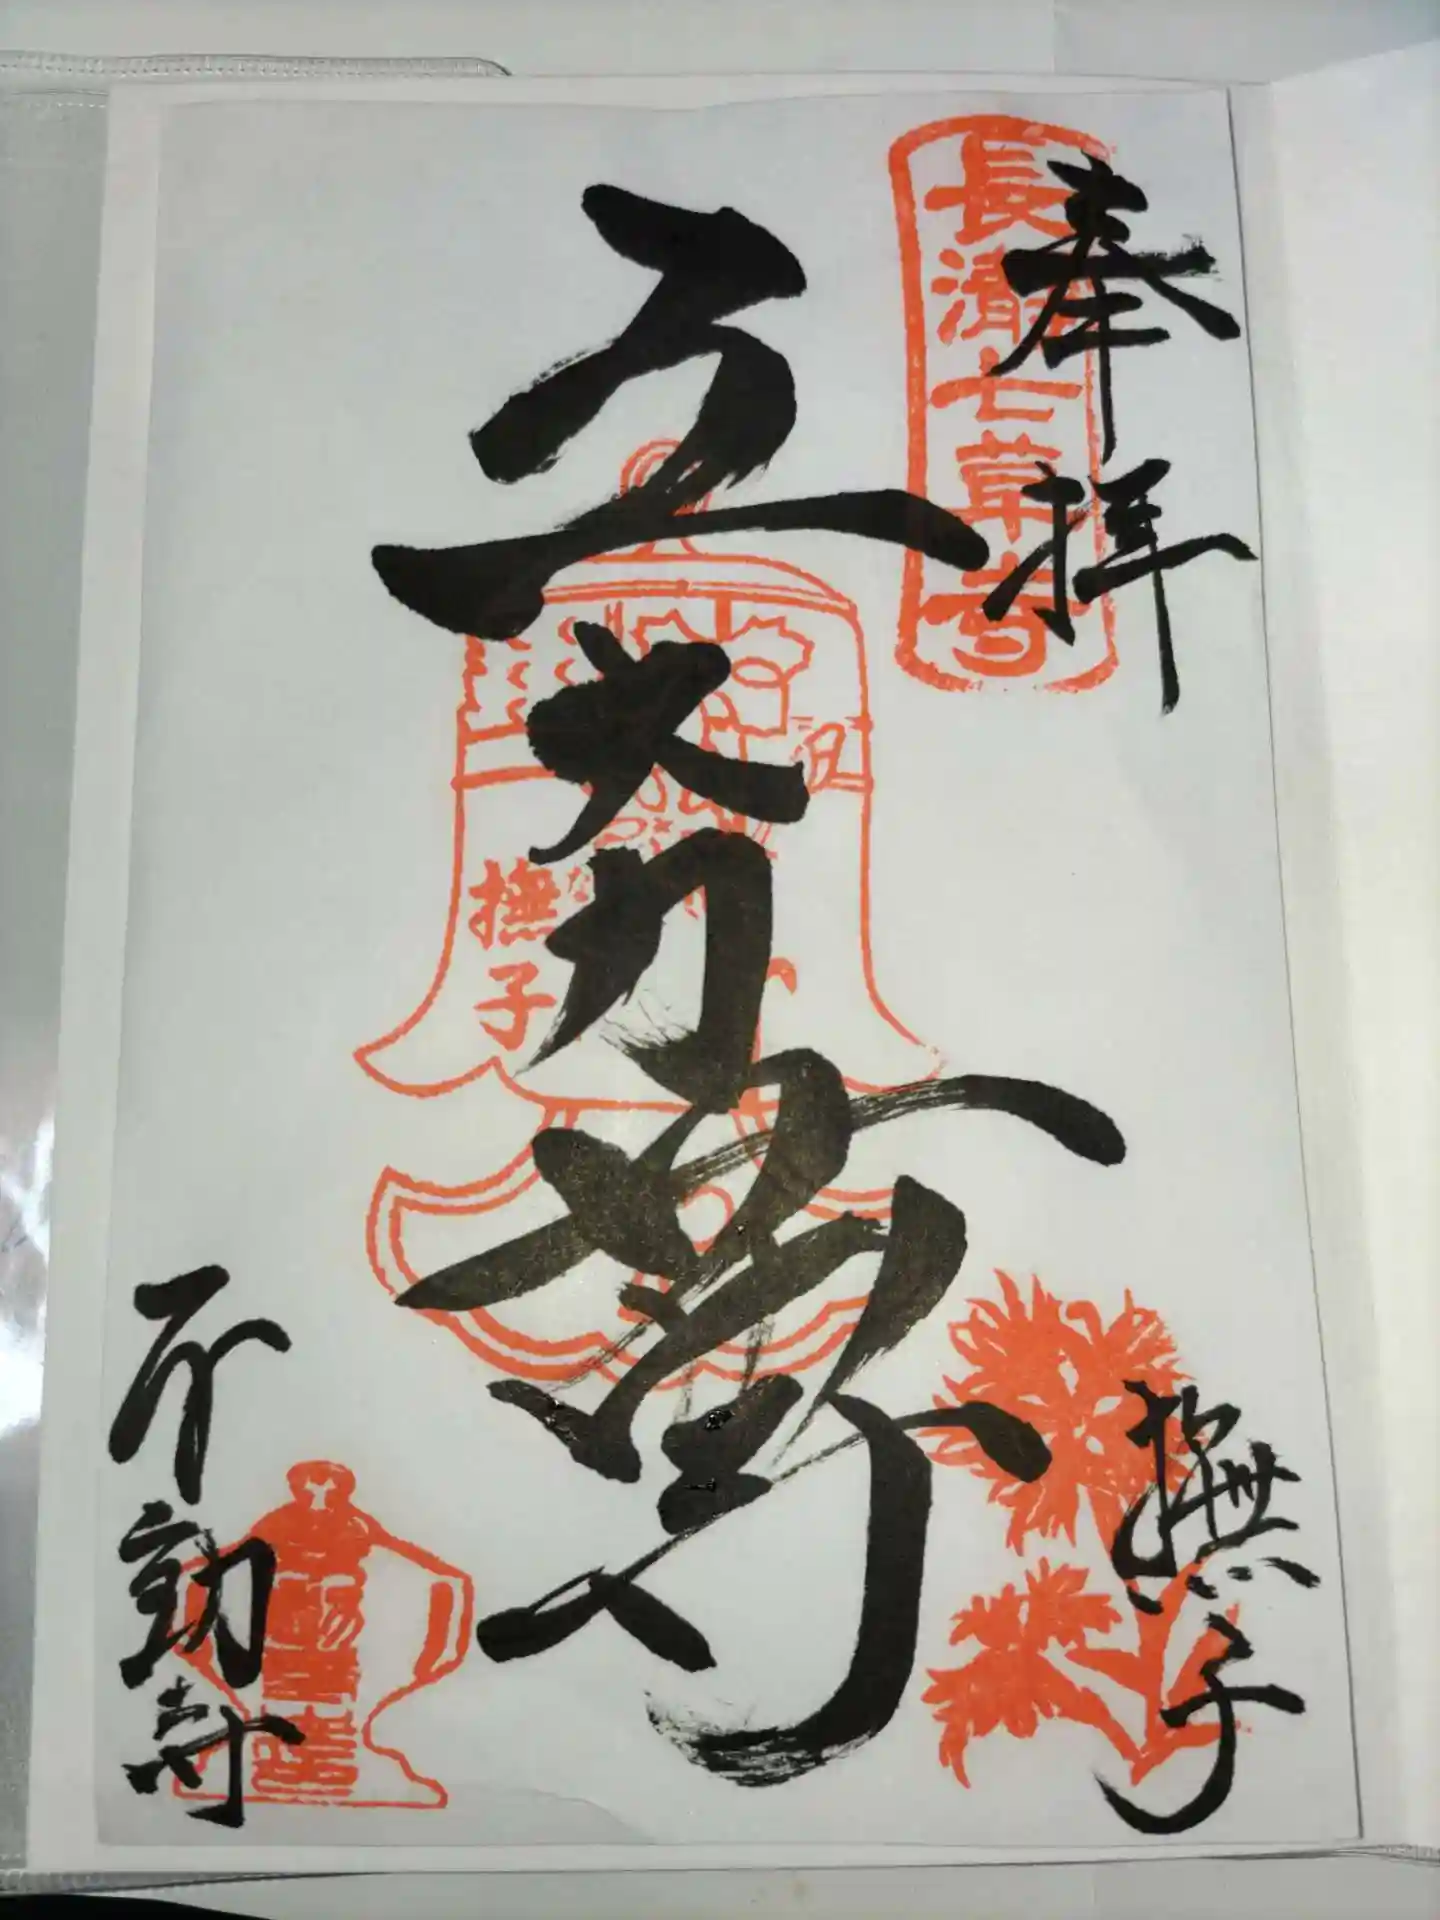 奉拝
長瀞七草寺
撫子
五大力尊
撫子
不動寺